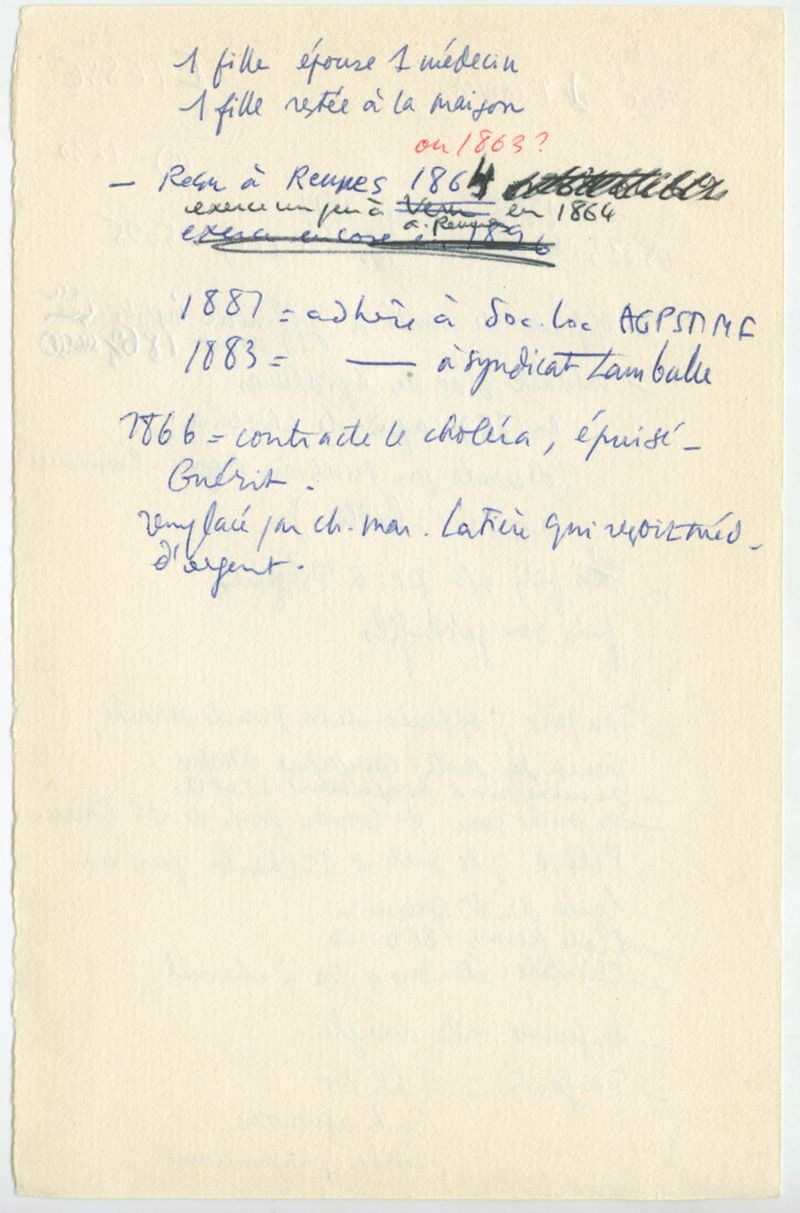 1 fille épouse 1 médecin
1 fille restée à la maison
ou 1863?
— Reçu à Rennes 1864
exerce un peu à Vern en 1864
à Rennes
exerce encore en 1896
1881 = adhère à Soc. loc AGPSMMF
1883 = — à syndicat Lamballe
1866 = contracte le choléra, épuisé –
Guérit.
remplacé par ch. mar. Latière qui reçoit méd.
d'argent.